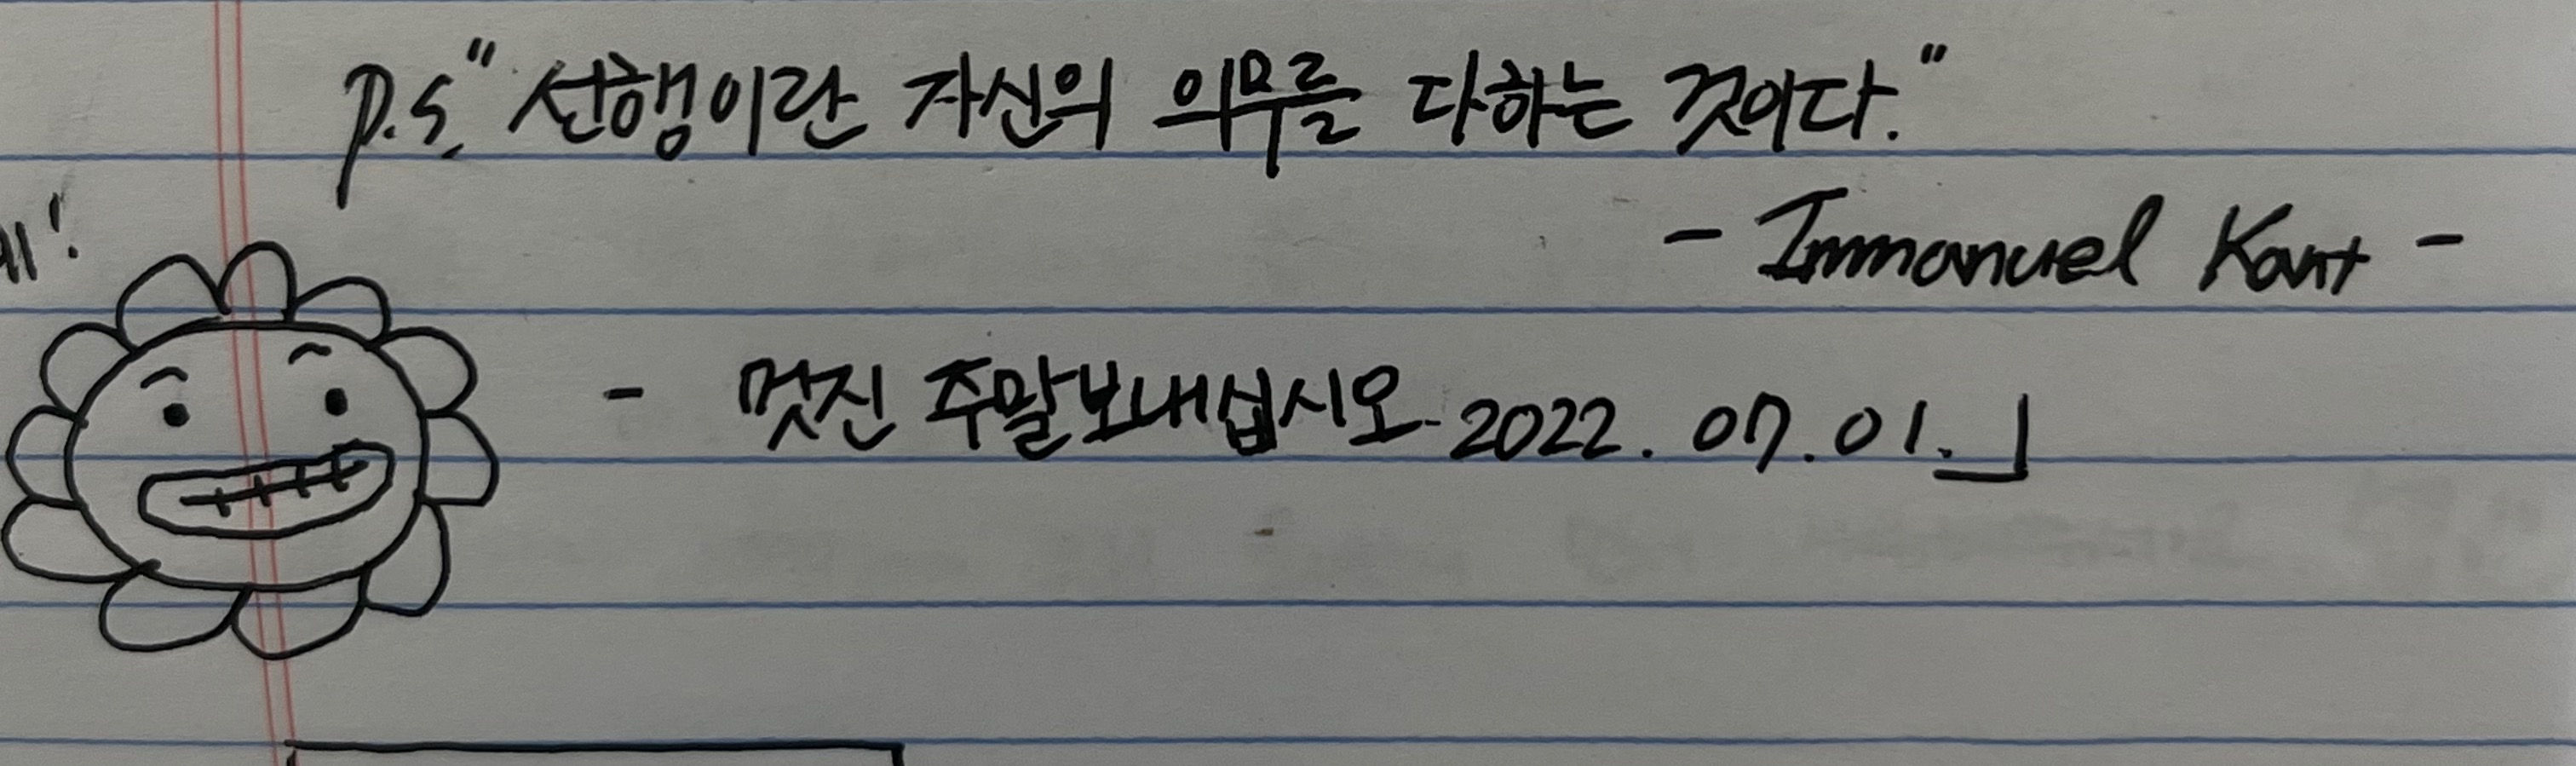 P.S. "선행이란 자신의 의무를 다하는 것이다."
- Immanuel Kant -
- 멋진 주말보내십시오. 2022. 07. 01.」